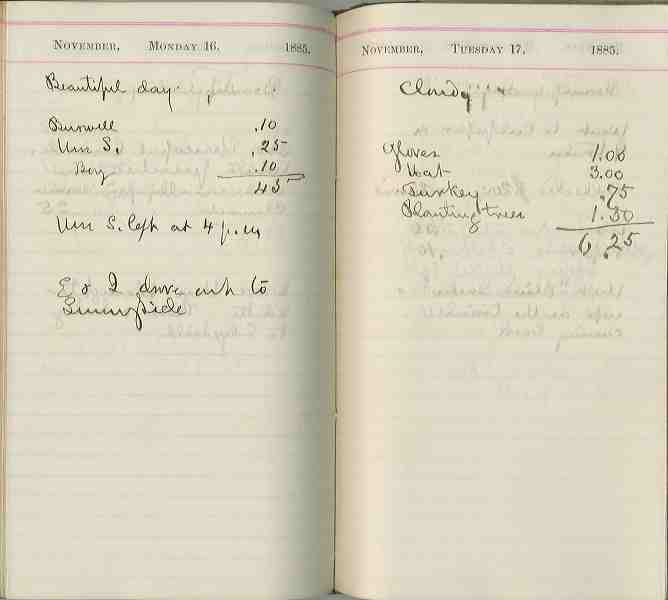 November, Monday 16. 1885.
Beautiful day.
Burwell .10
Um S. .25
Boy .10
45
Um S. left at 4 p.m
E & I drove out to
Sunnyside
November, Tuesday 17. 1885.
Cloudy
Gloves 1.00
3.00
Turkey .75
Planting trees 1.50
6.25